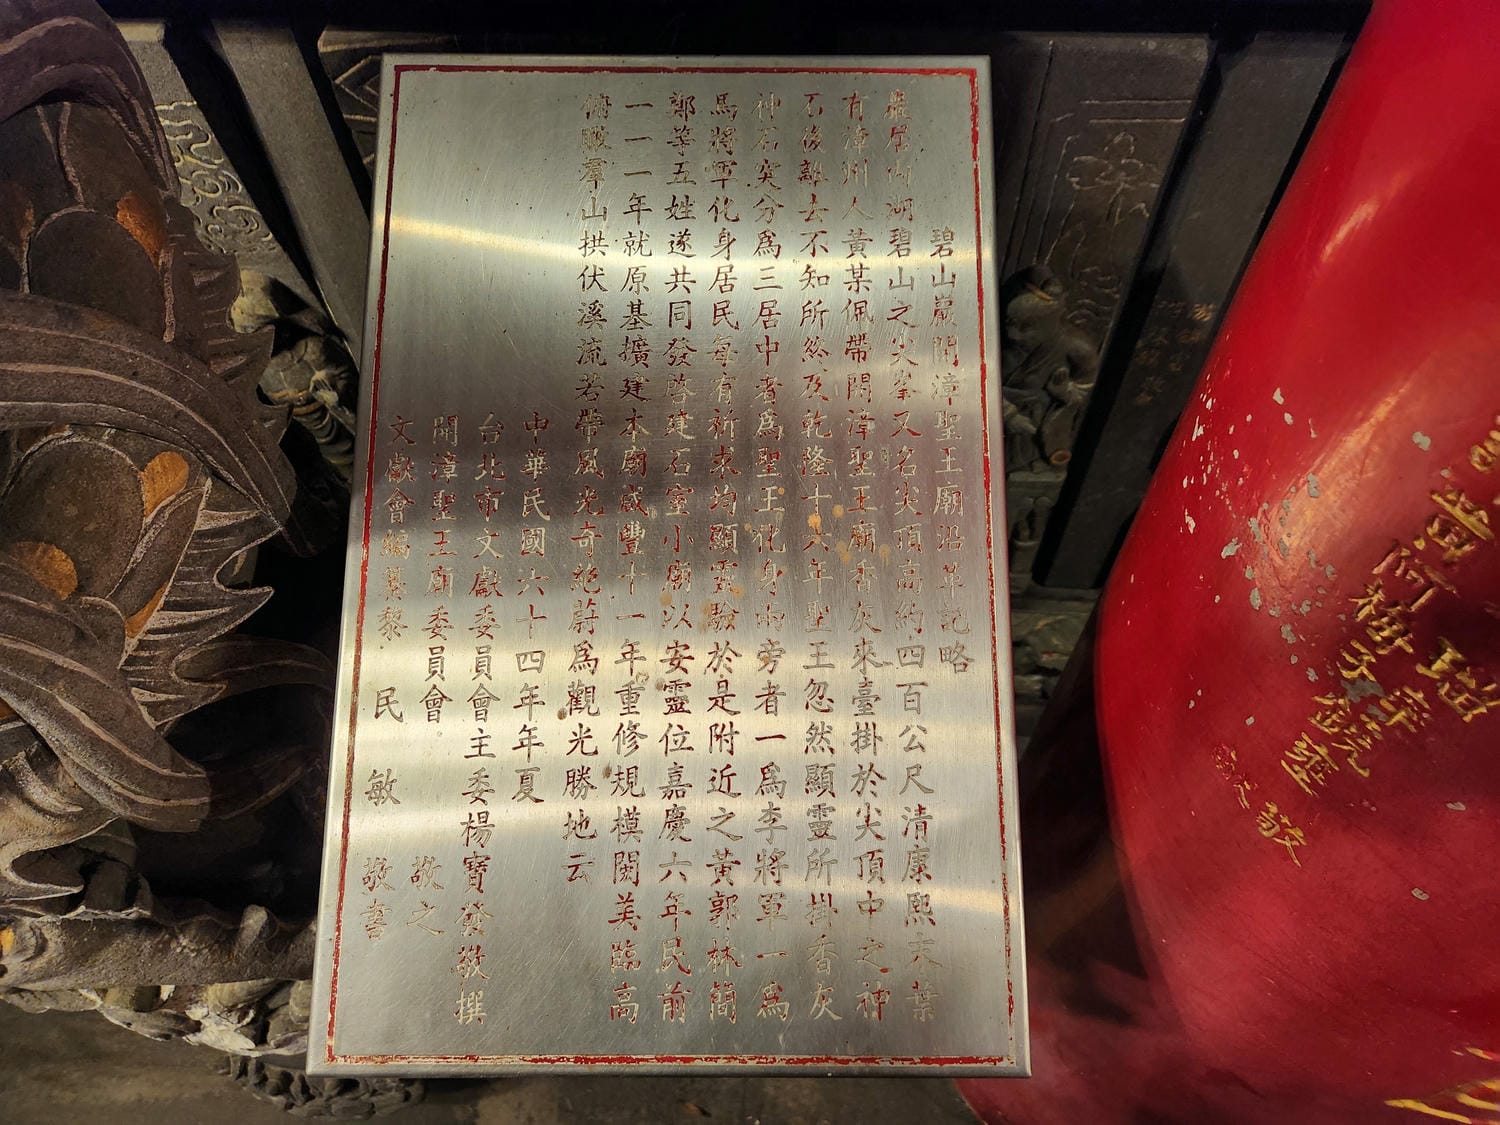 碧山巖開漳聖王廟沿革記略
巖居內湖碧山之尖峯又名尖頂高約四百公尺清康熙末葉
有漳州人黃某佩帶開漳聖王廟香灰來臺掛於尖頂中之神
石後離去不知所終及乾隆十六年聖王忽然顯靈所掛香灰
神石突分為三居中者為聖王化身兩旁者一為李將軍一為
馬將軍化身居民每有祈求均顯靈驗於是附近之黃郭林簡
鄭等五姓遂共同發啓建石室小廟以安靈位嘉慶六年民前
一一一年就原基擴建本廟咸豐十一年重修規模閎美臨高
俯瞰羣山拱伏溪流若帶風光奇絕蔚為觀光勝地云
中華民國六十四年年夏
台北市文獻委員會主委楊寶發敬撰
開漳聖王廟委員會 敬之
文獻會編纂黎民敏敬書
黃阿梅
子鏡
敬